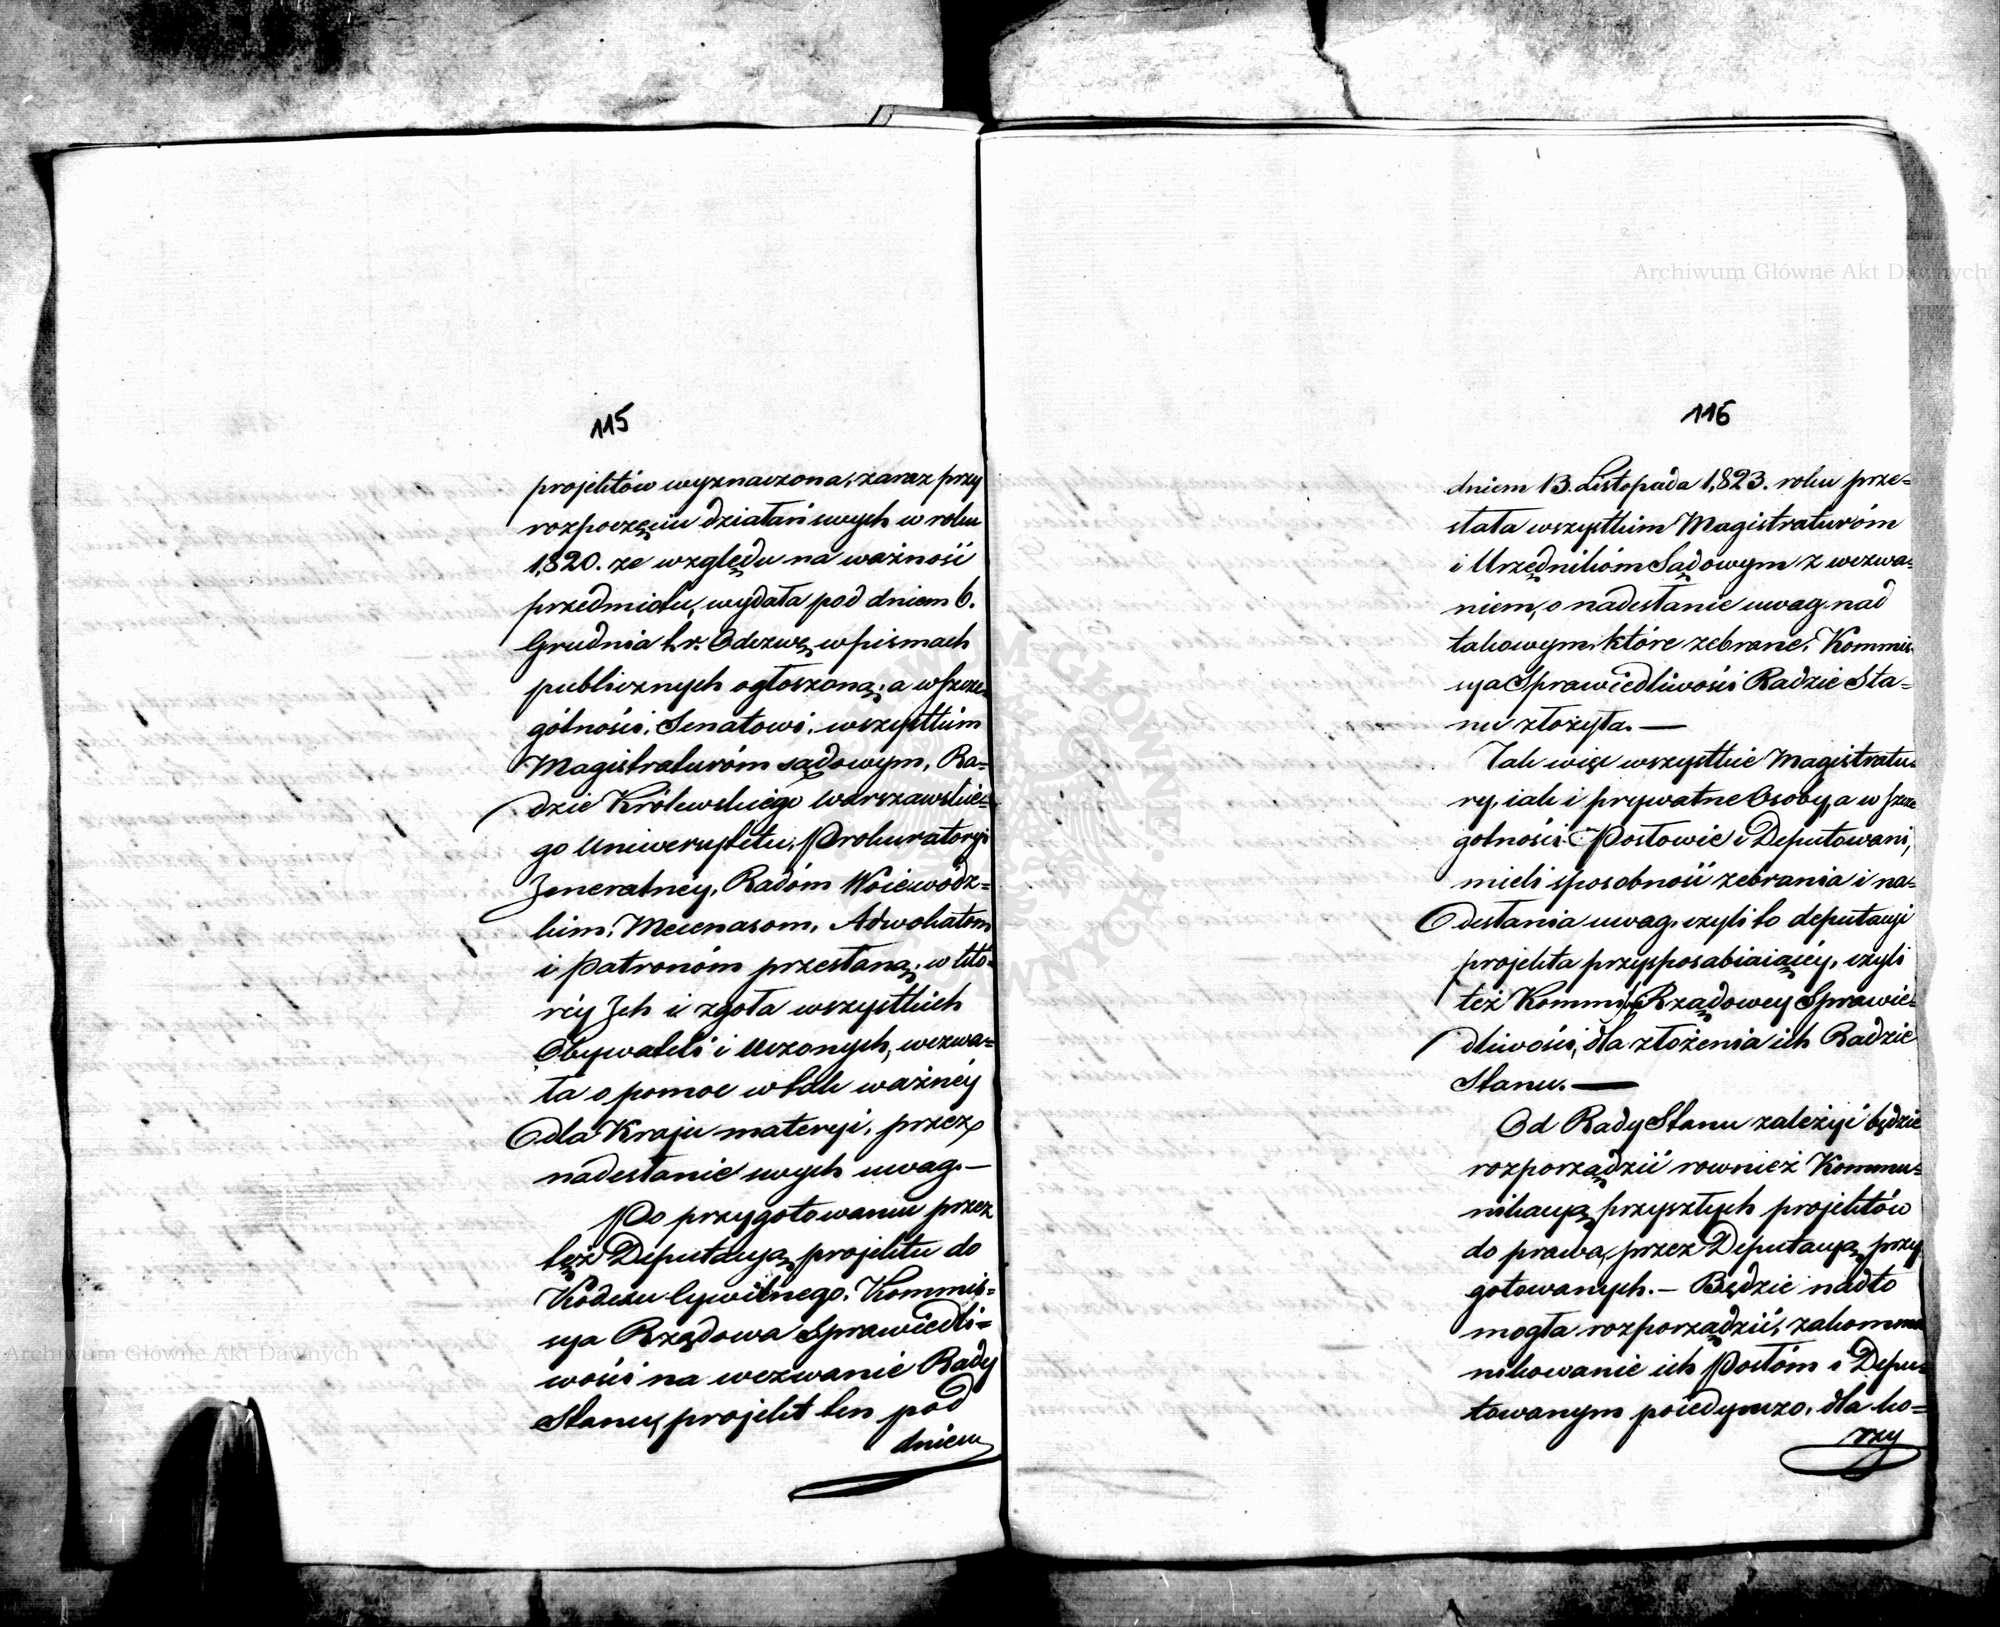 115
projektów wyznaczona, zaraz przy
rozpoczęciu działań swych w roku
1820. ze względu na ważność
przedmiotu, wydała pod dniem 6.
Grudnia t. r. Odezwę, w pismach
publicznych ogłoszoną; a w szcze=
gólności, Senatowi, wszystkim
Magistraturóm sądowym, Ra=
dzie Królewskiego Warszawskie=
go Uniwersytetu, Prokuratoryi
Jeneralnéy, Radóm Woiewódz=
kim, Mecenasom, Adwokatom
i Patronóm przesłaną; w któ=
réy Ich i zgoła wszystkich
Obywateli i Uczonych, wezwa=
ła o pomoc w tak ważnéy
dla Kraju materyi, przez
nadesłanie swych uwag. —
Po przygotowaniu przez
tęż Deputacyą, projektu do
Kodexu Cywilnego, Kommis=
sya Rządowa Sprawiedli=
wości na wezwanie Rady
Stanu, projekt ten pod
dniem
116
dniem 13. Listopada 1823. roku prze=
słała wszystkim Magistraturóm
i Urzędnikóm Sądowym z wezwa=
niem, o nadesłanie uwag nad
takowym, które zebrane, Kommis=
sya Sprawiedliwości Radzie Sta=
nu złożyła. —
Tak więc wszystkie Magistratu=
ry, iak i prywatne Osoby, a w szcze
gólności Posłowie i Deputowani,
mieli sposobność zebrania i na=
desłania uwag, czyli to deputacyi
projekta przysposabiaiącéy, czyli
też Kommissyi Rządowey Sprawie=
dliwości, dla złożenia ich Radzie
Stanu. —
Od Rady Stanu zależyć będzie
rozporządzić rownież Kommu=
nikacyą przyszłych projektów
do prawa, przez Deputacyą przy
gotowanych. — Będzie nadto
mogła rozporządzić, zakommu
nikowanie ich Posłóm i Depu=
towanym poiedynczo, dla ko=
rzy
Archiwum Główne Akt Dawnych
Archiwum Główne Akt Dawnych